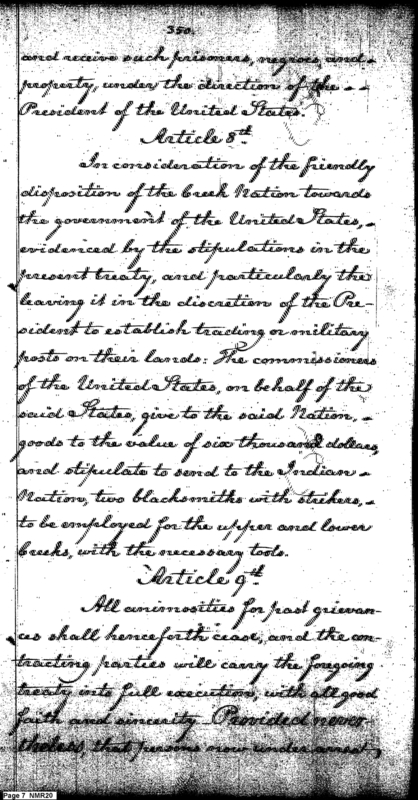 350.
and receive such prisoners, negroes, and -
property, under the direction of the - -
President of the United States.
Article 8th.
In consideration of the friendly
disposition of the Creek Nation towards
the government of the United States, -
evidenced by the stipulations in the
present treaty, and particularly the
leaving it in the discretion of the Pre-
sident to establish trading or military
posts on their lands: The commissioners
of the United States, on behalf of the
said States, give to the said Nation, -
goods to the value of six thousand dollars,
and stipulate to send to the Indian -
Nation, two blacksmiths with strikers, -
to be employed for the upper and lower
Creeks, with the necessary tools.
Article 9th.
All animosities for past grievan-
ces shall henceforth cease, and the con-
tracting parties will carry the foregoing
treaty into full execution, with all good
faith and sincerity Provided never-
theless, that persons now under arrest,
Page 7 NMR20